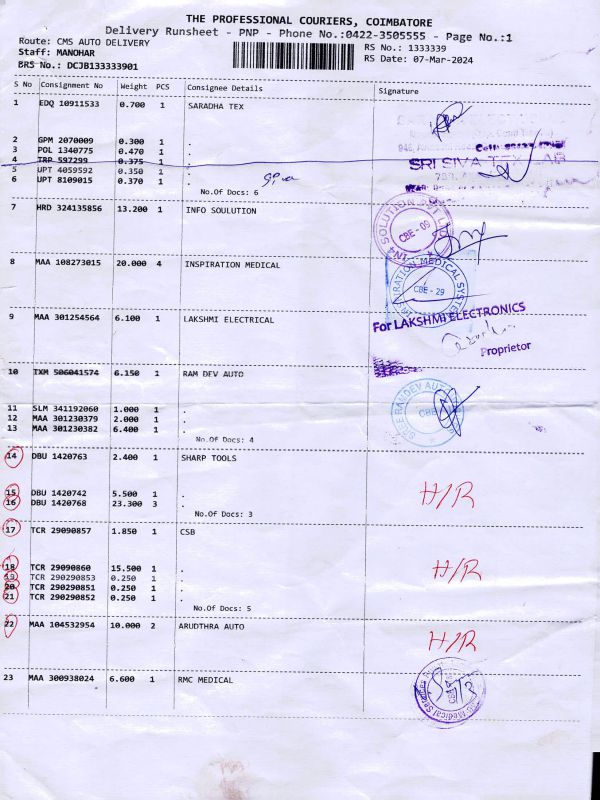 THE PROFESSIONAL COURIERS, COIMBATORE
Delivery Runsheet - PNP - Phone No.:0422-3505555 - Page No.:1
Route: CMS AUTO DELIVERY
RS No.: 1333339
Staff: MANOHAR
RS Date: 07-Mar-2024
BRS No.: DCJB133333901
S No Consignment No Weight PCS Consignee Details Signature
1 EDQ 10911533 0.700 1 SARADHA TEX
2 GPM 2070009 0.300 1 .
3 POL 1340775 0.470 1 .
4 TRP 597299 0.375 1 .
SRI SIVA TEX LAB
5 UPT 4059592 0.350 1 .
6 UPT 8109015 0.370 1 .
No.Of Docs: 6
7 HRD 324135856 13.200 1 INFO SOULUTION
IN4 SOLUTION PVT LTD
CBE - 09
8 MAA 108273015 20.000 4 INSPIRATION MEDICAL
INSPIRATION MEDICAL SYSTEM
CBE - 29
9 MAA 301254564 6.100 1 LAKSHMI ELECTRICAL
For LAKSHMI ELECTRONICS
Proprietor
10 TXM 506041574 6.150 1 RAM DEV AUTO
SREE RAMDEV AUTO
CBE
11 SLM 341192060 1.000 1 .
12 MAA 301230379 2.000 1 .
13 MAA 301230382 6.400 1 .
No.Of Docs: 4
14 DBU 1420763 2.400 1 SHARP TOOLS
15 DBU 1420742 5.500 1 .
H/R
16 DBU 1420768 23.300 3 .
No.Of Docs: 3
17 TCR 29090857 1.850 1 CSB
18 TCR 29090860 15.500 1 .
H/R
19 TCR 290290853 0.250 1 .
20 TCR 290290851 0.250 1 .
21 TCR 290290852 0.250 1 .
No.Of Docs: 5
22 MAA 104532954 10.000 2 ARUDTHRA AUTO
H/R
23 MAA 300938024 6.600 1 RMC MEDICAL